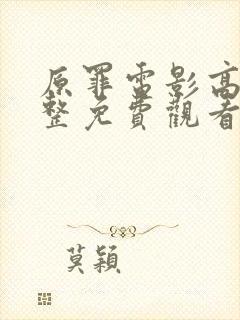 原罪電影高
整免費觀看
莫穎